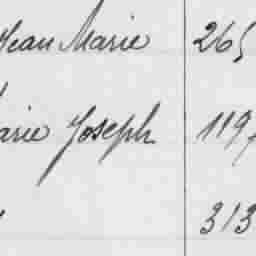 Jean Marie 265
arie Joseph 119
313